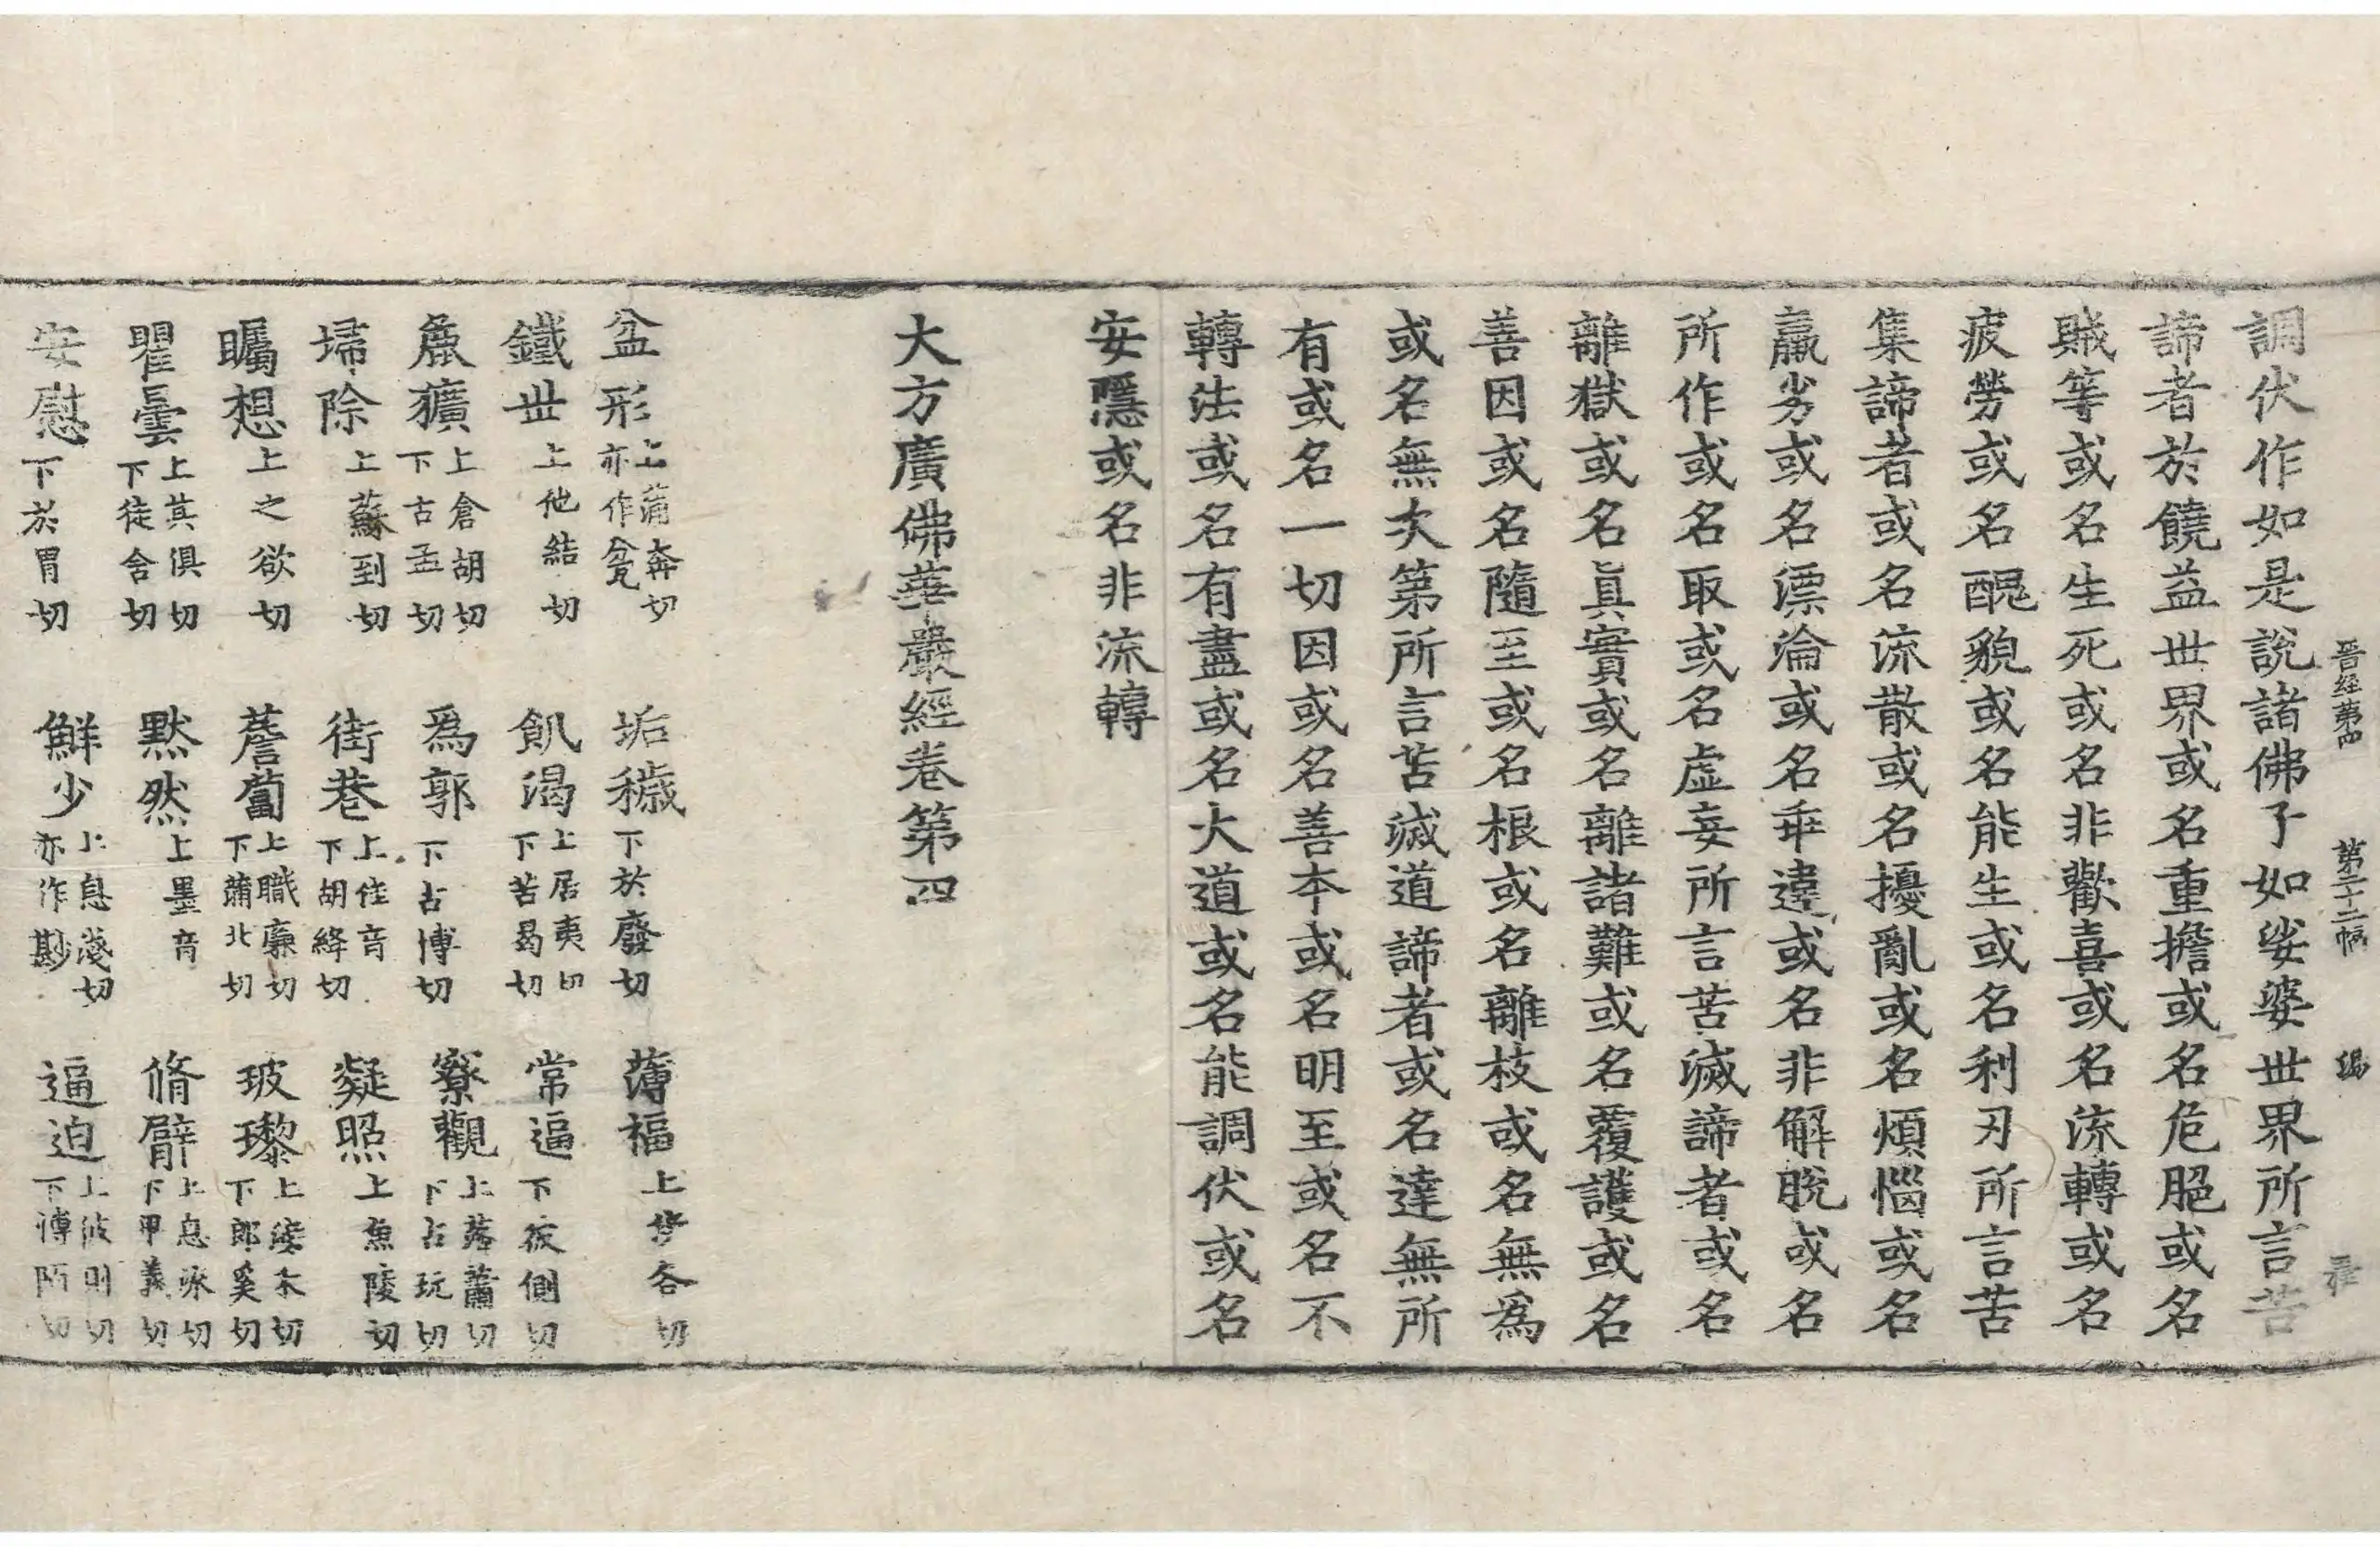 晉經第四 第二十二幅 𮞉
調伏作如是說諸佛子如娑婆世界所言苦
諦者於饒益世界或名重擔或名危脆或名
賊等或名生死或名非歡喜或名流轉或名
疲勞或名醜貌或名能生或名利刃所言苦
集諦者或名流散或名擾亂或名煩惱或名
羸劣或名漂淪或名乖違或名非解脫或名
所作或名取或名虛妄所言苦滅諦者或名
離獄或名眞實或名離諸難或名覆護或名
善因或名隨至或名根或名離枝或名無爲
或名無次第所言苦滅道諦者或名達無所
有或名一切因或名善本或名明至或名不
轉法或名有盡或名大道或名能調伏或名
安隱或名非流轉
大方廣佛華嚴經卷第四
盆形 上蒲奔切 亦作瓫 垢穢 下於廢切 薄福 上步各切
鐵丗 上他結切 飢渴 上居夷切 下苦曷切 常逼 下彼側切
麁獷 上倉胡切 下古孟切 爲郭 下古博切 寮觀 上落蕭切 下古玩切
埽除 上蘇到切 街巷 上佳音 下胡絳切 凝照 上魚陵切
矚想 上之欲切 薝蔔 上職廉切 下蒲北切 玻瓈 上滂禾切 下郎奚切
瞿曇 上其俱切 下徒含切 默然 上墨音 脩臂 上息流切 下卑義切
安慰 下於胃切 鮮少 上息淺切 亦作尠 逼迫 上彼則切 下博陌切